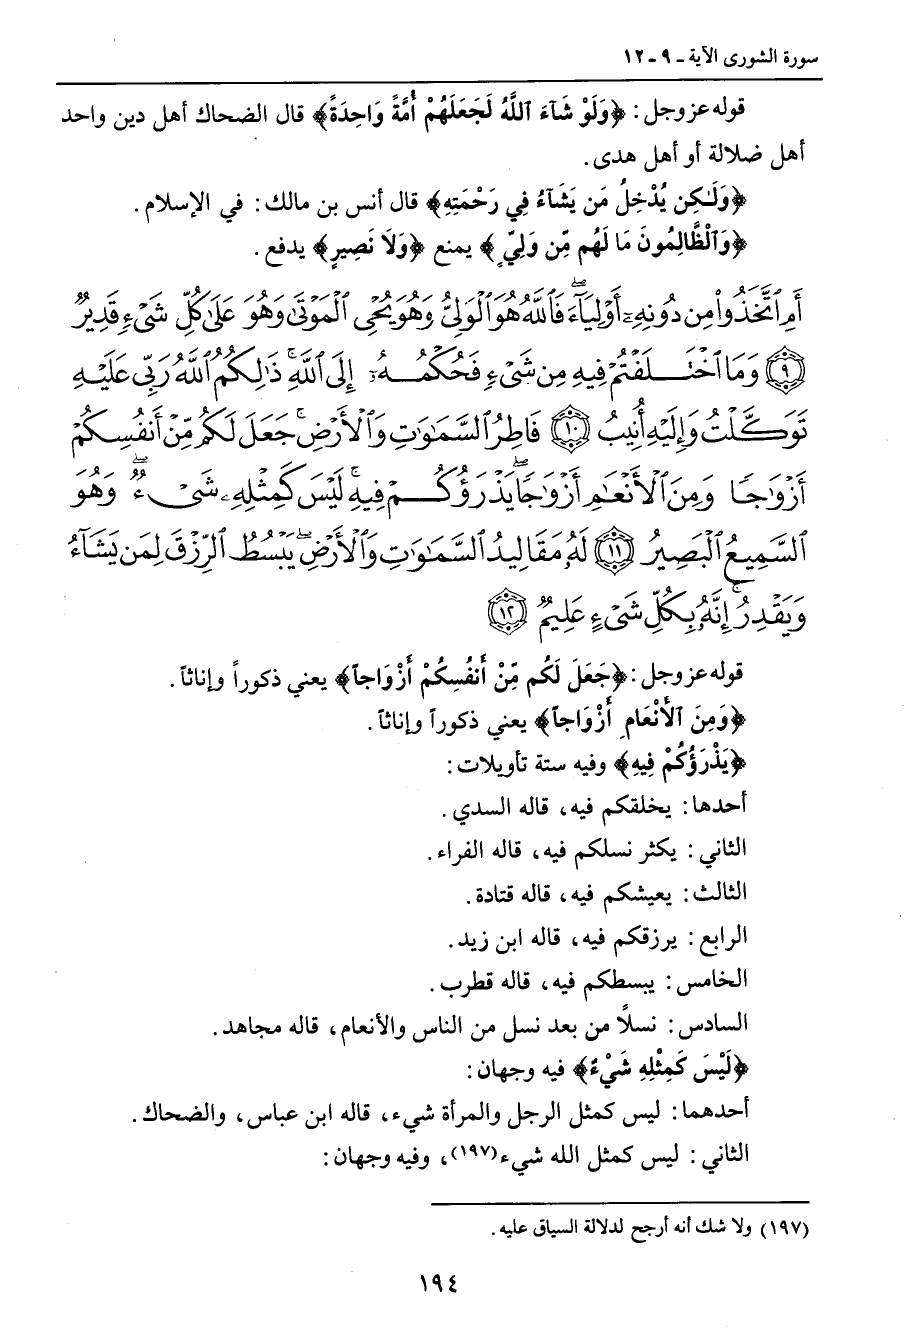 سورة الشورى الآية - ٩ - ١٢
قوله عز وجل : ﴿وَلَوْ شَآءَ ٱللَّهُ لَجَعَلَهُمْ أُمَّةً وَاحِدَةً﴾ قال الضحاك أهل دين واحد
أهل ضلالة أو أهل هدى .
﴿وَلَـٰكِن يُدْخِلُ مَن يَشَآءُ فِي رَحْمَتِهِ﴾ قال أنس بن مالك : في الإسلام .
﴿وَٱلْظَّالِمُونَ مَا لَهُم مِّن وَلِيٍّ﴾ يمنع ﴿وَلَا نَصِيرٍ﴾ يدفع .
أَمِ ٱتَّخَذُوا۟ مِن دُونِهِۦٓ أَوْلِيَآءَ ۖ فَٱللَّهُ هُوَ ٱلْوَلِىُّ وَهُوَ يُحْىِ ٱلْمَوْتَىٰ وَهُوَ عَلَىٰ كُلِّ شَىْءٍ قَدِيرٌ
﴿٩﴾ وَمَا ٱخْتَلَفْتُمْ فِيهِ مِن شَىْءٍ فَحُكْمُهُۥٓ إِلَى ٱللَّهِ ۚ ذَٰلِكُمُ ٱللَّهُ رَبِّى عَلَيْهِ
تَوَكَّلْتُ وَإِلَيْهِ أُنِيبُ ﴿١٠﴾ فَاطِرُ ٱلسَّمَـٰوَٰتِ وَٱلْأَرْضِ ۚ جَعَلَ لَكُم مِّنْ أَنفُسِكُمْ
أَزْوَٰجًا وَمِنَ ٱلْأَنْعَـٰمِ أَزْوَٰجًا ۖ يَذْرَؤُكُمْ فِيهِ ۚ لَيْسَ كَمِثْلِهِۦ شَىْءٌ ۖ وَهُوَ
ٱلسَّمِيعُ ٱلْبَصِيرُ ﴿١١﴾ لَهُۥ مَقَالِيدُ ٱلسَّمَـٰوَٰتِ وَٱلْأَرْضِ ۖ يَبْسُطُ ٱلرِّزْقَ لِمَن يَشَآءُ
وَيَقْدِرُ ۚ إِنَّهُۥ بِكُلِّ شَىْءٍ عَلِيمٌ ﴿١٢﴾
قوله عز وجل : ﴿جَعَلَ لَكُم مِّنْ أَنفُسِكُمْ أَزْوَاجاً﴾ يعني ذكوراً وإناثاً .
﴿وَمِنَ ٱلأَنْعَامِ أَزْوَاجاً﴾ يعني ذكوراً وإناثاً .
﴿يَذْرَؤُكُمْ فِيهِ﴾ وفيه ستة تأويلات :
أحدها : يخلقكم فيه ، قاله السدي .
الثاني : يكثر نسلكم فيه ، قاله الفراء .
الثالث : يعيشكم فيه ، قاله قتادة .
الرابع : يرزقكم فيه ، قاله ابن زيد .
الخامس : يبسطكم فيه ، قاله قطرب .
السادس : نسلاً من بعد نسل من الناس والأنعام ، قاله مجاهد .
﴿لَيْسَ كَمِثْلِهِ شَيْءٌ﴾ فيه وجهان :
أحدهما : ليس كمثل الرجل والمرأة شيء ، قاله ابن عباس ، والضحاك .
الثاني : ليس كمثل الله شيء(١٩٧) ، وفيه وجهان :
(١٩٧) ولا شك أنه أرجح لدلالة السياق عليه .
١٩٤